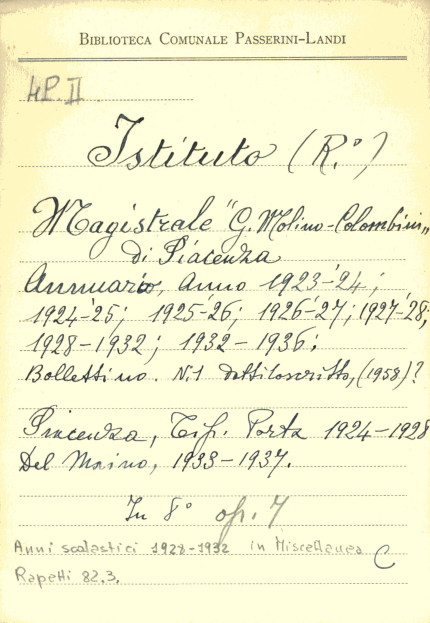 BIBLIOTECA COMUNALE PASSERINI-LANDI
4P. II
Istituto (R.°)
Magistrale "G. Molino-Colombini"
di Piacenza
Annuario, Anno 1923-'24;
1924-'25; 1925-26; 1926-'27; 1927-'28;
1928-1932; 1932-1936;
Bollettino. N. 1 dattiloscritto, (1958)?
Piacenza, Tip. Porta 1924-1928
Del Maino, 1933-1937.
In 8° op. 7
Anni scolastici 1928-1932 in Miscellanea C
Rapetti 82.3.